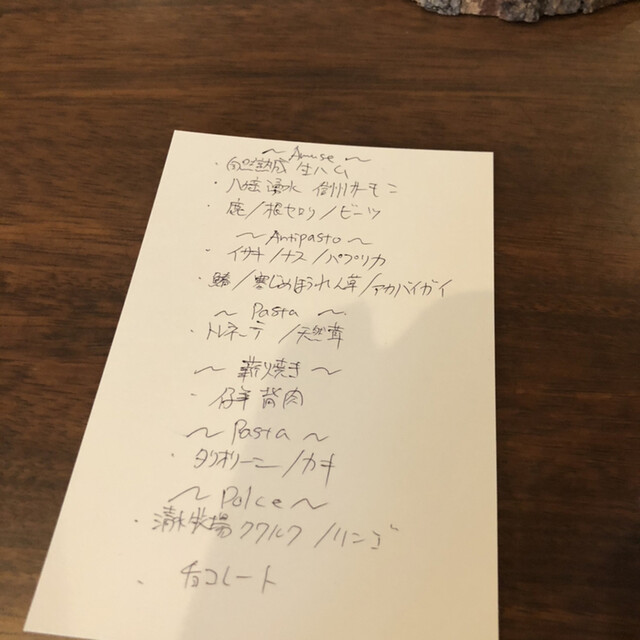 ～ Amuse ～
・自然熟成 生ハム
・八千穂湧水 信州サーモン
・鹿/根セロリ/ビーツ
～ Antipasto ～
・イサキ/ナス/パプリカ
・鰆/寒じめほうれん草/アカバイガイ
～ Pasta ～
・トルキーテ/天然茸
～ 薪焼き ～
・仔羊 背肉
～ Pasta ～
・タリオリーニ/カキ
～ Dolce ～
・清水牧場 クワルク/リンゴ
・チョコレート